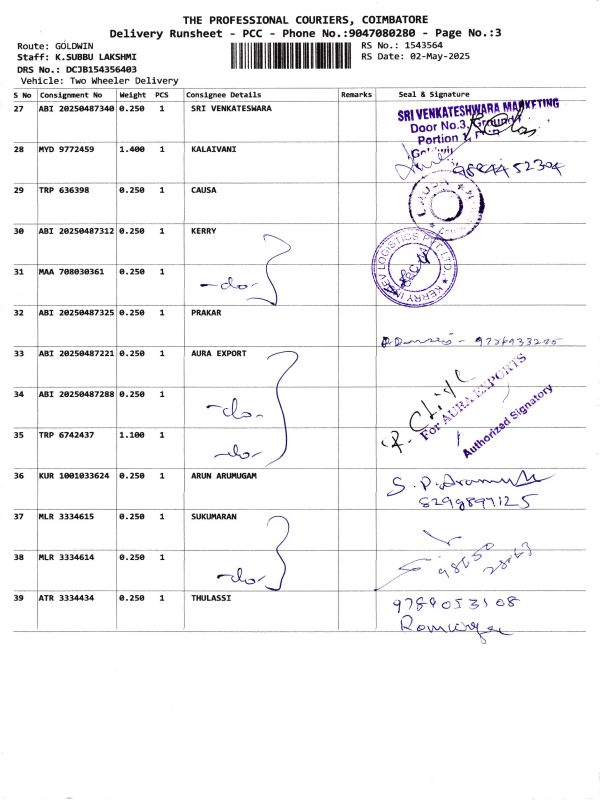 THE PROFESSIONAL COURIERS, COIMBATORE
Delivery Runsheet - PCC - Phone No.:9047080280 - Page No.:3
Route: GOLDWIN
RS No.: 1543564
Staff: K.SUBBU LAKSHMI
RS Date: 02-May-2025
DRS No.: DCJB154356403
Vehicle: Two Wheeler Delivery
S No Consignment No Weight PCS Consignee Details Remarks Seal & Signature
27 ABI 20250487340 0.250 1 SRI VENKATESWARA
SRI VENKATESHWARA MARKETING
Door No.3, Ground
Portion
28 MYD 9772459 1.400 1 KALAIVANI
29 TRP 636398 0.250 1 CAUSA
CAUSA
30 ABI 20250487312 0.250 1 KERRY
KERRY INDEV LOGISTICS PVT. LTD.
31 MAA 708030361 0.250 1 -do-
32 ABI 20250487325 0.250 1 PRAKAR
33 ABI 20250487221 0.250 1 AURA EXPORT
For AURA EXPORTS
Authorized Signatory
34 ABI 20250487288 0.250 1 -do-
35 TRP 6742437 1.100 1 -do-
36 KUR 1001033624 0.250 1 ARUN ARUMUGAM
37 MLR 3334615 0.250 1 SUKUMARAN
38 MLR 3334614 0.250 1 -do-
39 ATR 3334434 0.250 1 THULASSI
9789053108